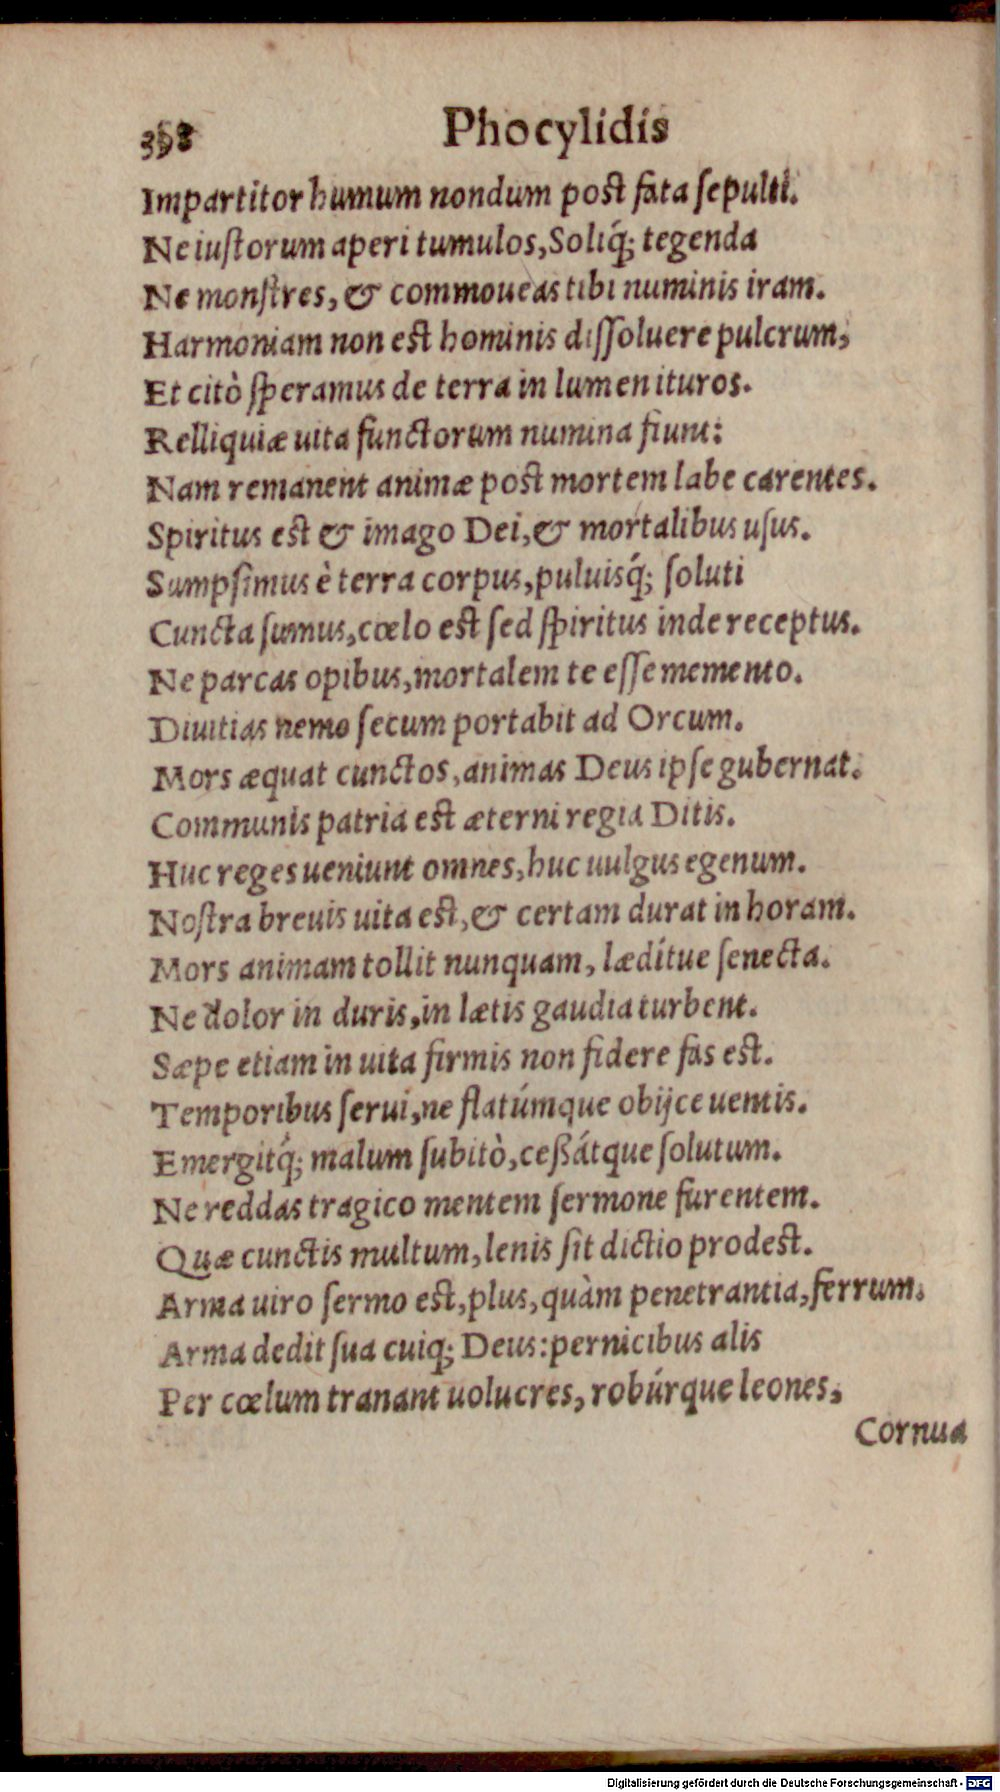 398 Phocylidis
Impartitor humum nondum post fata sepulti.
Ne iustorum aperi tumulos, Soliq́; tegenda
Ne monstres, & commoueas tibi numinis iram.
Harmoniam non est hominis dissoluere pulcrum,
Et citò speramus de terra in lumen ituros.
Relliquiæ uita functorum numina fiunt:
Nam remanent animæ post mortem labe carentes.
Spiritus est & imago Dei, & mortalibus usus.
Sumpsimus è terra corpus, puluisq́; soluti
Cuncta sumus, cœlo est sed spiritus inde receptus.
Ne parcas opibus, mortalem te esse memento.
Diuitias nemo secum portabit ad Orcum.
Mors æquat cunctos, animas Deus ipse gubernat.
Communis patria est æterni regia Ditis.
Huc reges ueniunt omnes, huc uulgus egenum.
Nostra breuis uita est, & certam durat in horam.
Mors animam tollit nunquam, lædítue senecta.
Ne dolor in duris, in lætis gaudia turbent.
Sæpe etiam in uita firmis non fidere fas est.
Temporibus serui, ne flatúmque obijce uentis.
Emergitq́; malum subitò, ceßátque solutum.
Ne reddas tragico mentem sermone furentem.
Quæ cunctis multum, lenis sit dictio prodest.
Arma uiro sermo est, plus, quàm penetrantia, ferrum.
Arma dedit sua cuiq; Deus: pernicibus alis
Per cœlum tranant uolucres, robúrque leones,
Cornua
Digitalisierung gefördert durch die Deutsche Forschungsgemeinschaft - DFG